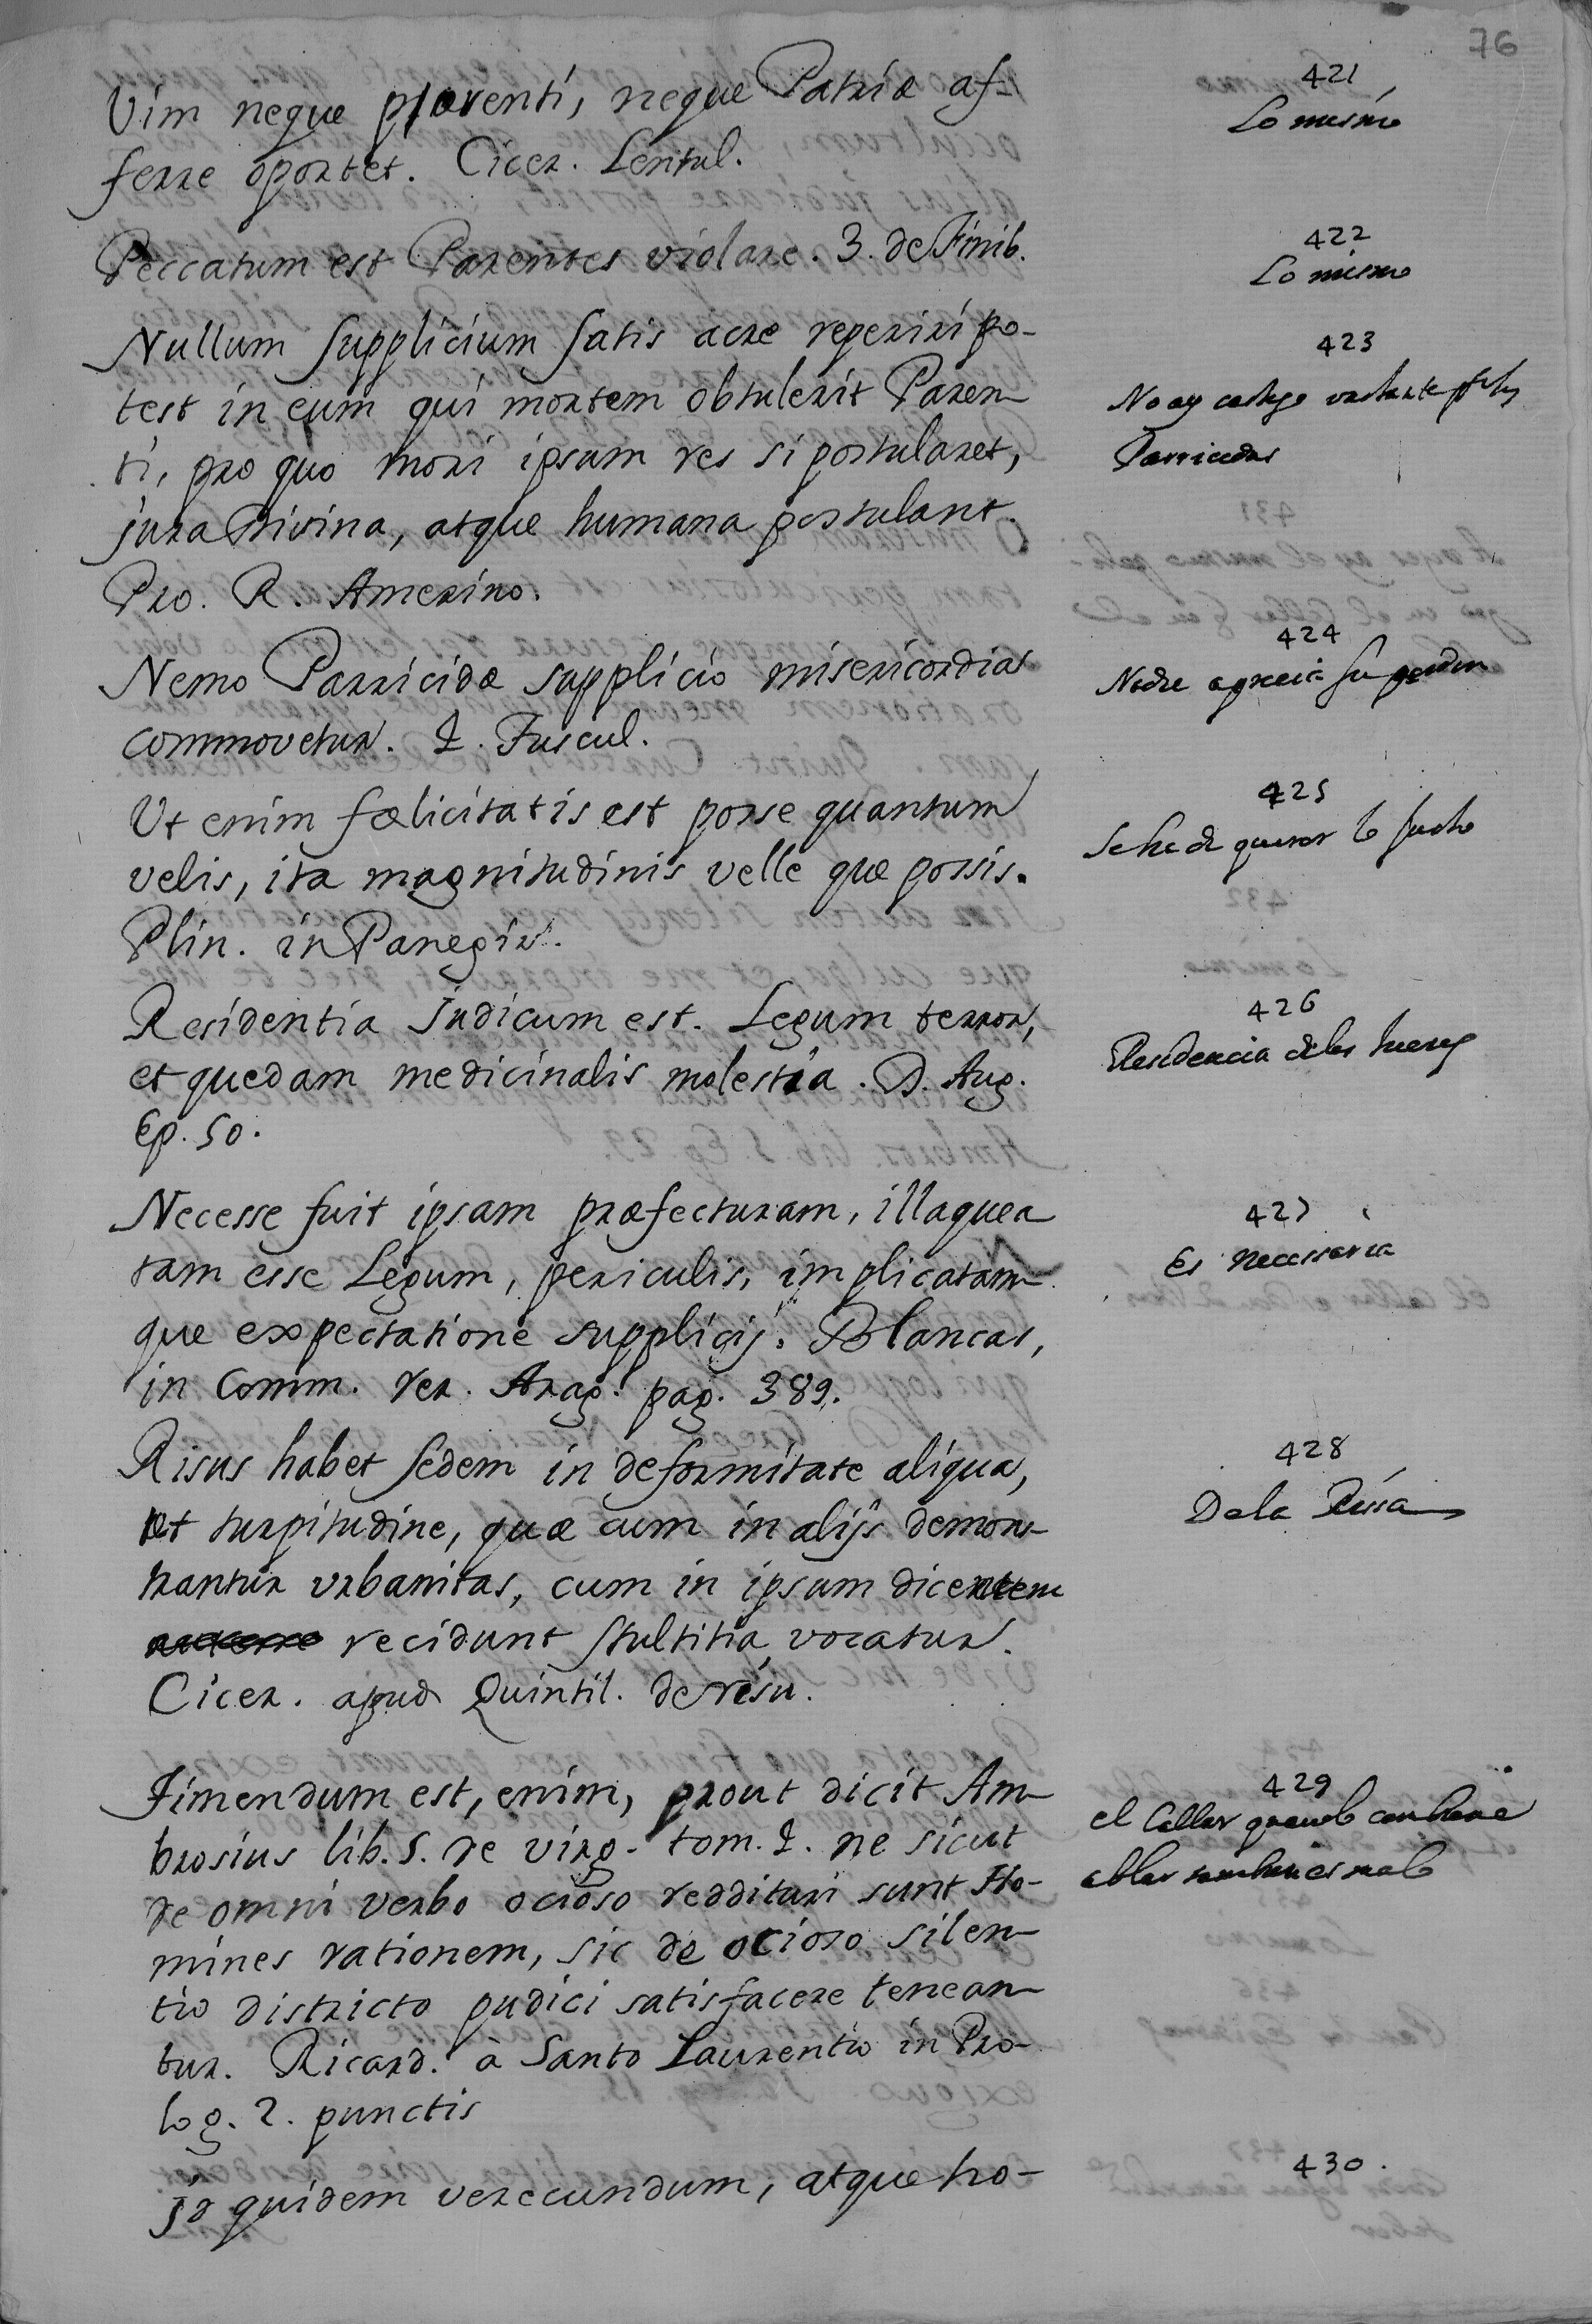 76
421
Lo mismo
Vim neque parenti, neque Patriæ af-
ferre oportet. Cicer. Lentul.
422
Lo mismo
Peccatum est Parentes violare. 3. de Finib.
423
No ay castigo vastante
Parricidas
Nullum supplicium satis acre reperiri po-
test in eum qui mortem obtulerit Paren-
ti, pro quo mori ipsum res si postularet,
jura Divina, atque humana postulant.
Pro. R. Amerino.
424
Nadie su perdon
Nemo Parricidæ supplicio misericordia
commovetur. 2. Tuscul.
425
Se ha de querer lo justo
Ut enim fœlicitatis est posse quantum
velis, ita magnitudinis velle quæ possis.
Plin. in Panegir.
426
Residencia de los Jueces
Residentia Judicum est. Legum terror,
et quedam medicinalis molestia. D. Aug.
Ep. 50.
427
Es necessaria
Necesse fuit ipsam præfecturam, illaquea
tam esse Legum, periculis, implicatam-
que expectatione supplicij. Blancas,
in Comm. rer. Arag. pag. 389.
428
De la Risa
Risus habet sedem in deformitate aliqua,
et turpitudine, quæ cum in alijs demons-
trantur urbanitas, cum in ipsum dicentem
recidunt stultitia vocatur.
Cicer. apud Quintil. de risu.
429
el Callar quando conbiene
ablar tambien es malo
Timendum est, enim, prout dicit Am-
brosius lib. 5. de virg. tom. 2. ne sicut
de omni verbo ocioso reddituri sunt Ho-
mines rationem, sic de ocioso silen-
tio districto judici satisfacere tenean-
tur. Ricard. à Santo Laurentio in Pro-
log. 2. punctis
430.
Id quidem verecundum, atque ho-